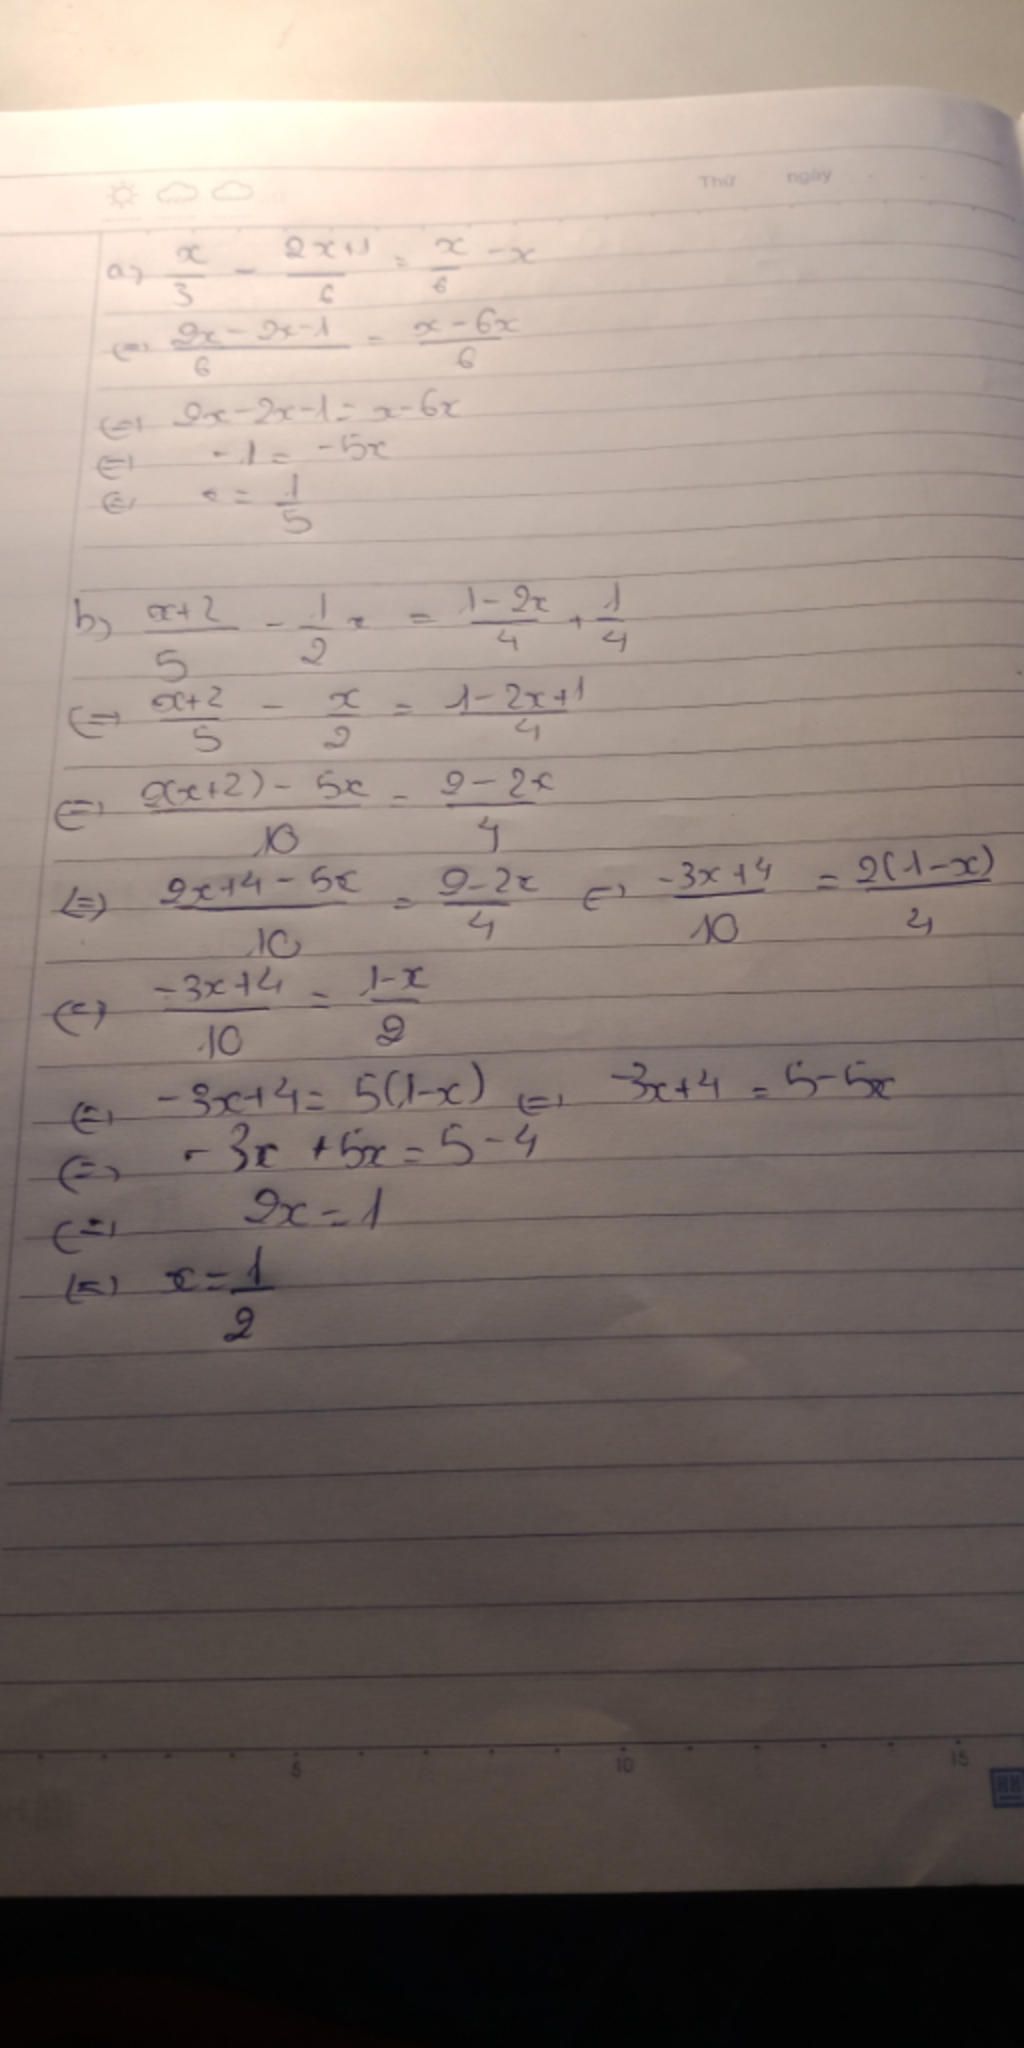 Thứ ngày
a) x/3 - 2x+1/6 = x/6 - x
<=> 2x-2x-1/6 = x-6x/6
<=> 2x-2x-1 = x-6x
<=> -1 = -5x
<=> x = 1/5
b) x+2/5 - 1/2 x = 1-2x/4 + 1/4
<=> x+2/5 - x/2 = 1-2x+1/4
<=> 2(x+2) - 5x/10 = 2-2x/4
<=> 2x+4-5x/10 = 2-2x/4 <=> -3x+4/10 = 2(1-x)/4
<=> -3x+4/10 = 1-x/2
<=> -3x+4 = 5(1-x) <=> -3x+4 = 5-5x
<=> -3x+5x = 5-4
<=> 2x = 1
<=> x = 1/2
5 10 15